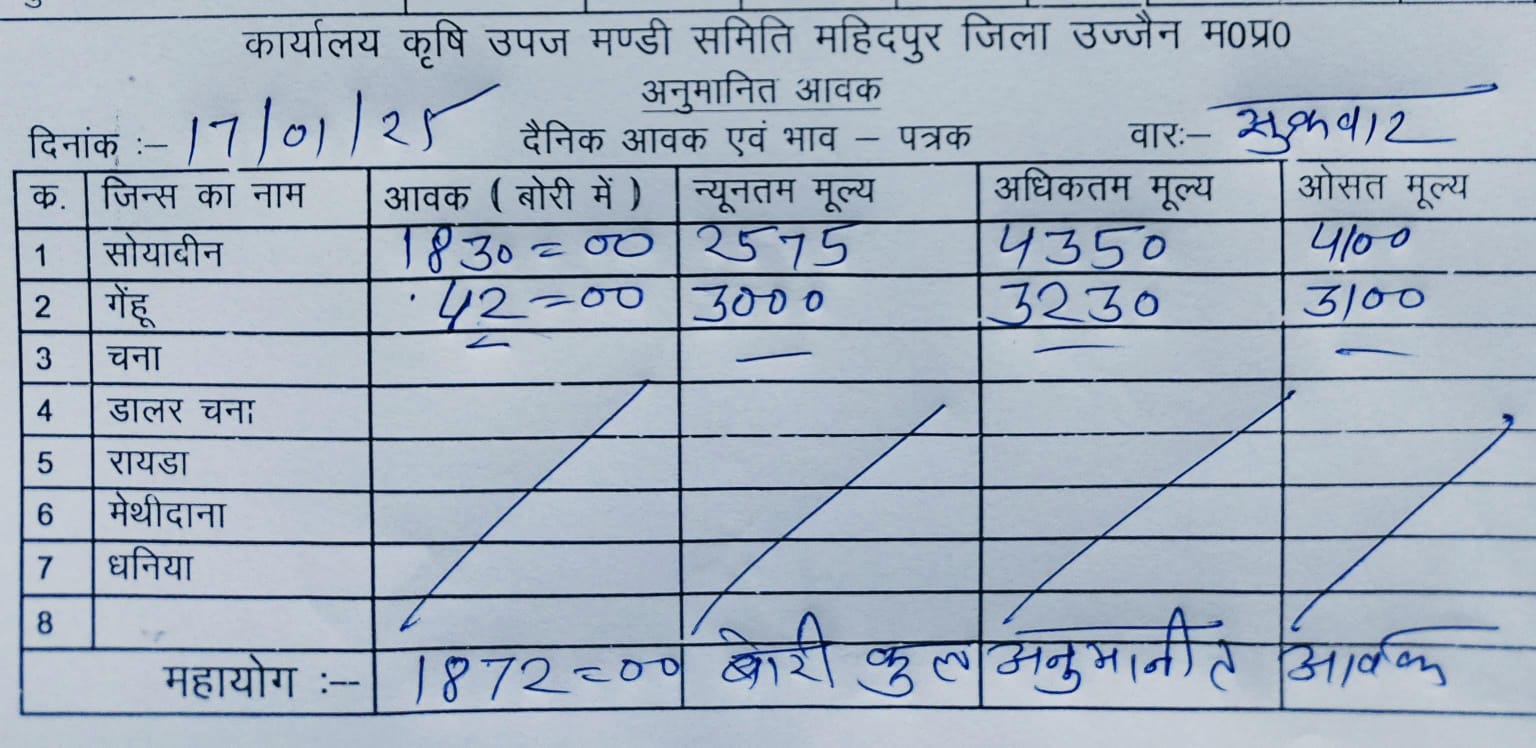 कार्यालय कृषि उपज मण्डी समिति महिदपुर जिला उज्जैन म0प्र0
अनुमानित आवक
दिनांक :– 17/01/25 दैनिक आवक एवं भाव – पत्रक वारः– सुक्रवार
क. जिन्स का नाम आवक ( बोरी में ) न्यूनतम मूल्य अधिकतम मूल्य ओसत मूल्य
1 सोयाबीन 1830=00 2575 4350 4100
2 गेंहू 42=00 3000 3230 3100
3 चना — — — —
4 डालर चना
5 रायडा
6 मेथीदाना
7 धनिया
8
महायोग :-- 1872=00 बोरी कुल अनुमानीत आवक